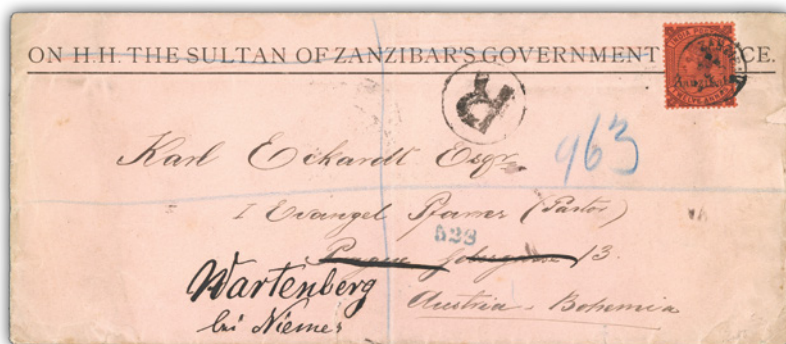 ON H.H. THE SULTAN OF ZANZIBAR'S GOVERNMENT CE.
INDIA POSTAGE
Zanzibar
TWELVE ANNAS
R
Karl Eckardt Esqre
963
I Evangel Pfarrer (Pastor)
523
13.
Wartenberg
bei Niemes
Austria - Bohemia